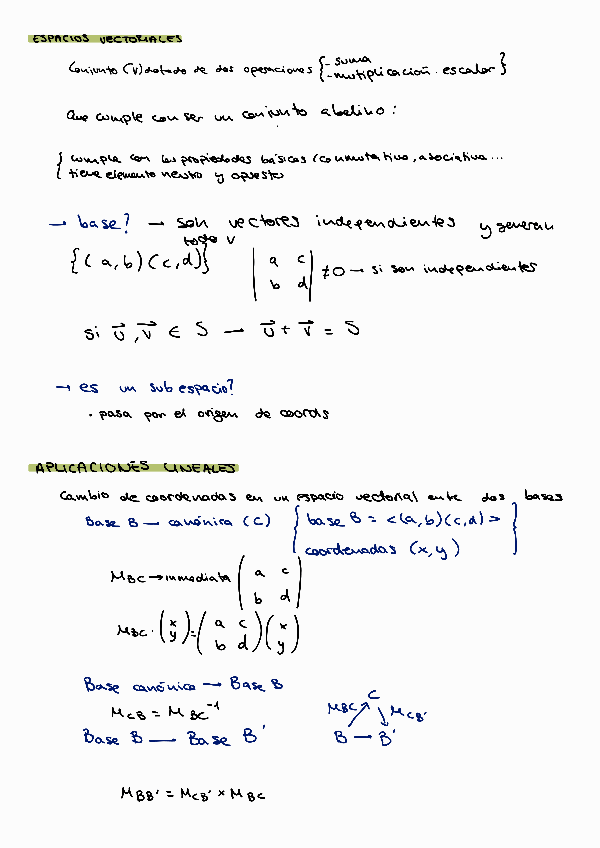 ESPACIOS VECTORIALES
Conjunto (V) dotado de dos operaciones { - suma
- multiplicación escalar }
Que cumple con ser un conjunto abelino:
{ cumpla con las propiedades básicas (conmutativa, asociativa...
tiene elemento neutro y opuesto
→ base? → son vectores independientes y generan
todo V
{(a,b)(c,d)} | a c | ≠0 → si son independientes
| b d |
si u⃗, v⃗ ∈ S → u⃗ + v⃗ = S
→ es un subespacio?
· pasa por el origen de coords
APLICACIONES LINEALES
Cambio de coordenadas en un espacio vectorial ente dos bases
Base B — canónica (C) { base B = <(a,b)(c,d)>
coordenadas (x,y) }
MBC → inmediata ( a c
b d )
MBC · (x y) = (a c
b d) (x y)
Base canónica → Base B
MCB = MBC⁻¹
Base B — Base B'
C
MBC ↗ ↘ MCB'
B → B'
MBB' = MCB' × MBC